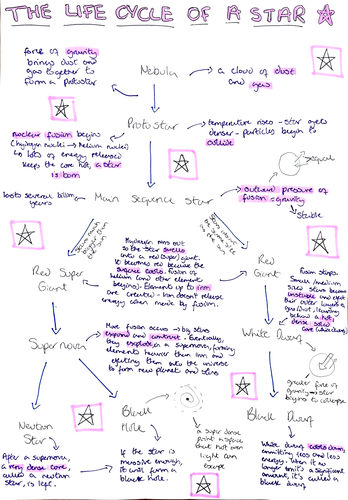 THE LIFE CYCLE OF A STAR
force of gravity
brings dust and
gas together to
form a protostar
Nebula
a cloud of dust
and gas
Protostar
temperature rises - star gets
denser - particles begin to
collide
nuclear fusion begins
(hydrogen nuclei → Helium nuclei)
so lots of energy released
keeps the core hot, a star
is born
equal
lasts several billion
years
Main Sequence Star
outward pressure of
fusion = gravity
↳ Stable
stars much
bigger than
the sun
stars about
the same size
as the sun
Hydrogen runs out
so the star swells
into a red (super) giant.
It becomes red because the
surface cools. Fusion of
helium (and other elements
begins). Elements up to iron
are created - Iron doesn't release
energy when made by fusion.
Red Super
Giant
Red
Giant
Fusion stops.
Small/medium
sized stars become
unstable and eject
their outer layers of
gas/dust, leaving
behind a hot,
dense solid
core (white dwarf)
White Dwarf
Supernova
More fusion occurs → big stars
expand and contract. Eventually,
they explode in a supernova, forming
elements heavier than iron and
ejecting them into the universe
to form new planets and stars
greater force of
gravity → star
begins to collapse
Neutron
Star
Black
Hole
Black Dwarf
After a supernova,
a very dense core,
called a neutron
star, is left.
If the star is
massive enough,
it will form a
black hole.
a super dense
point in space
that not even
light can
escape
White dwarf cools down,
emitting less and less
energy. When it no
longer emits a significant
amount, it's called a
black dwarf.